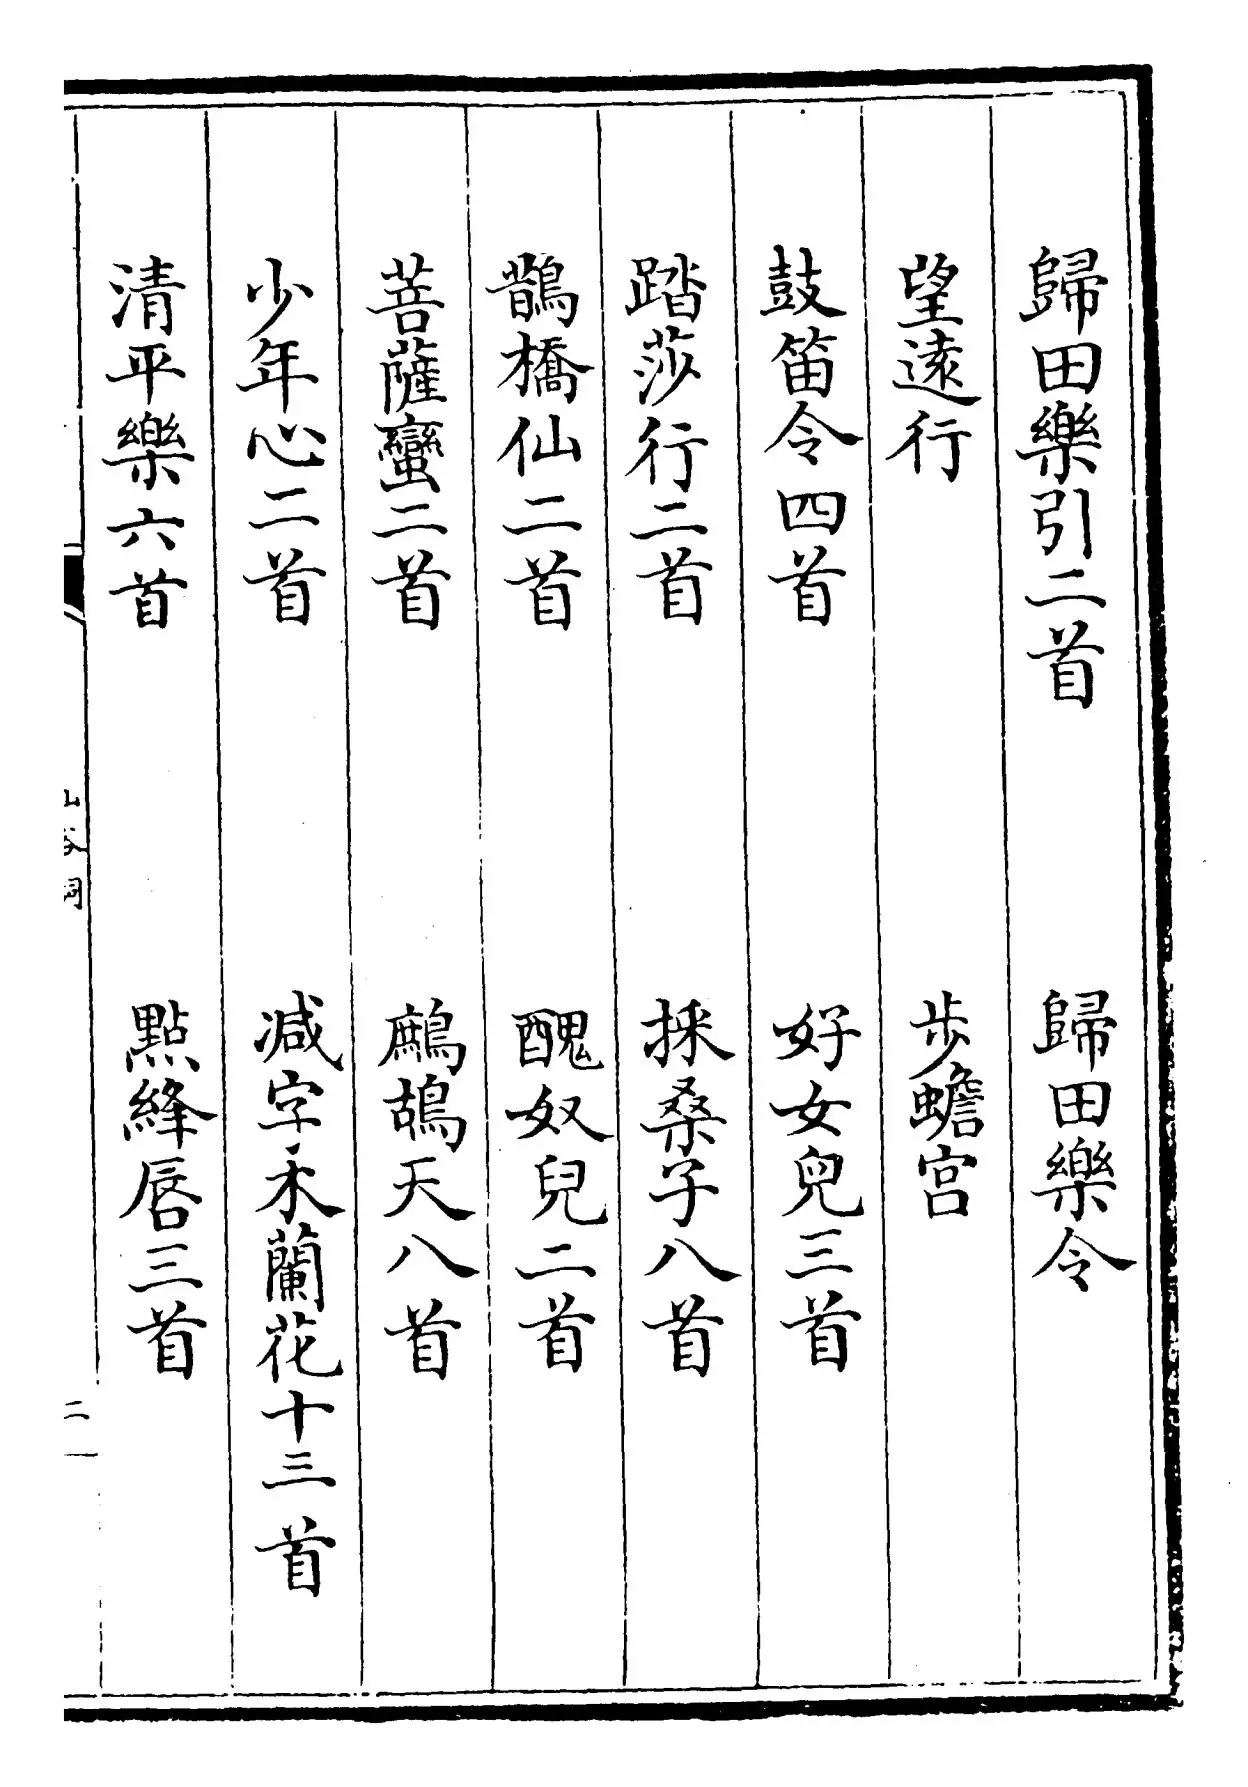 歸田樂引二首　歸田樂令
望遠行　步蟾宮
鼓笛令四首　好女兒三首
踏莎行二首　採桑子八首
鵲橋仙二首　醜奴兒二首
菩薩蠻二首　鷓鴣天八首
少年心二首　減字木蘭花十三首
清平樂六首　點絳唇三首
山谷詞　二